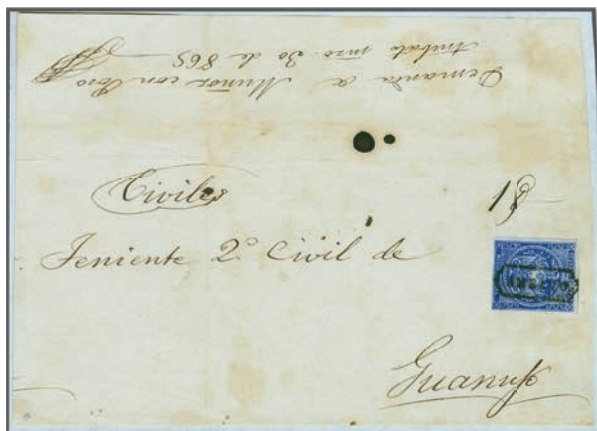 Demanda a Muñoz con Toro
Ambato mzo. 30 de 865
Civiles
Teniente 2º Civil de
Guanujo